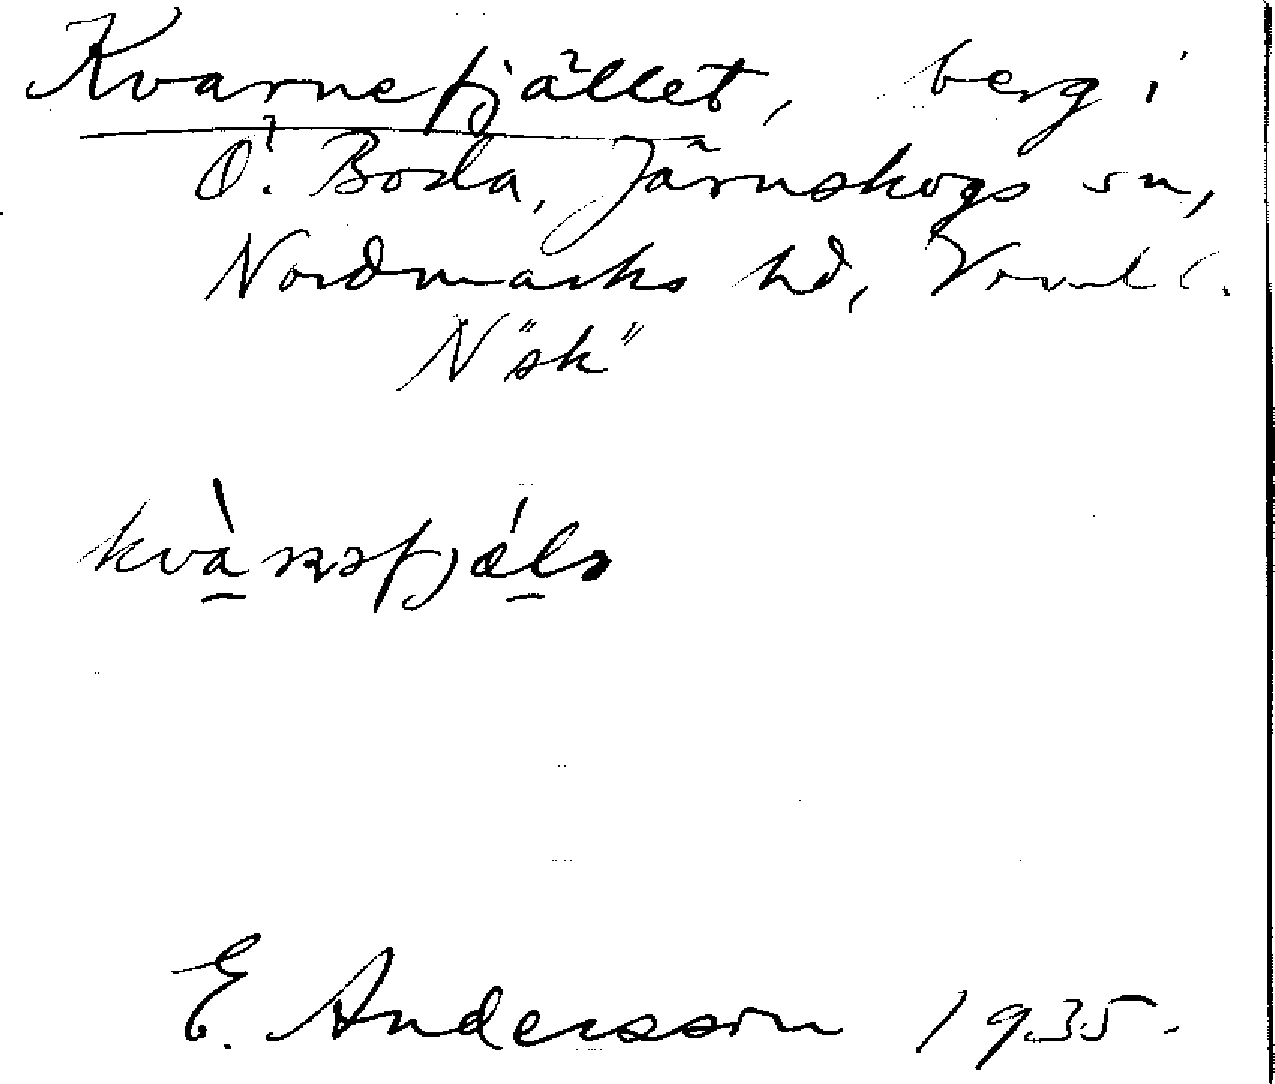 Kvarnefjället, berg i
Ö. Boda, Järnskogs sn,
Nordmarks hd, Vrml.
N "sk"
E. Andersson 1935.